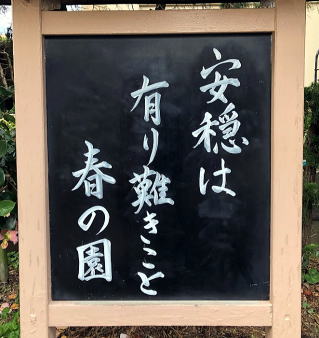 安穏は
有り難きこと
春の園